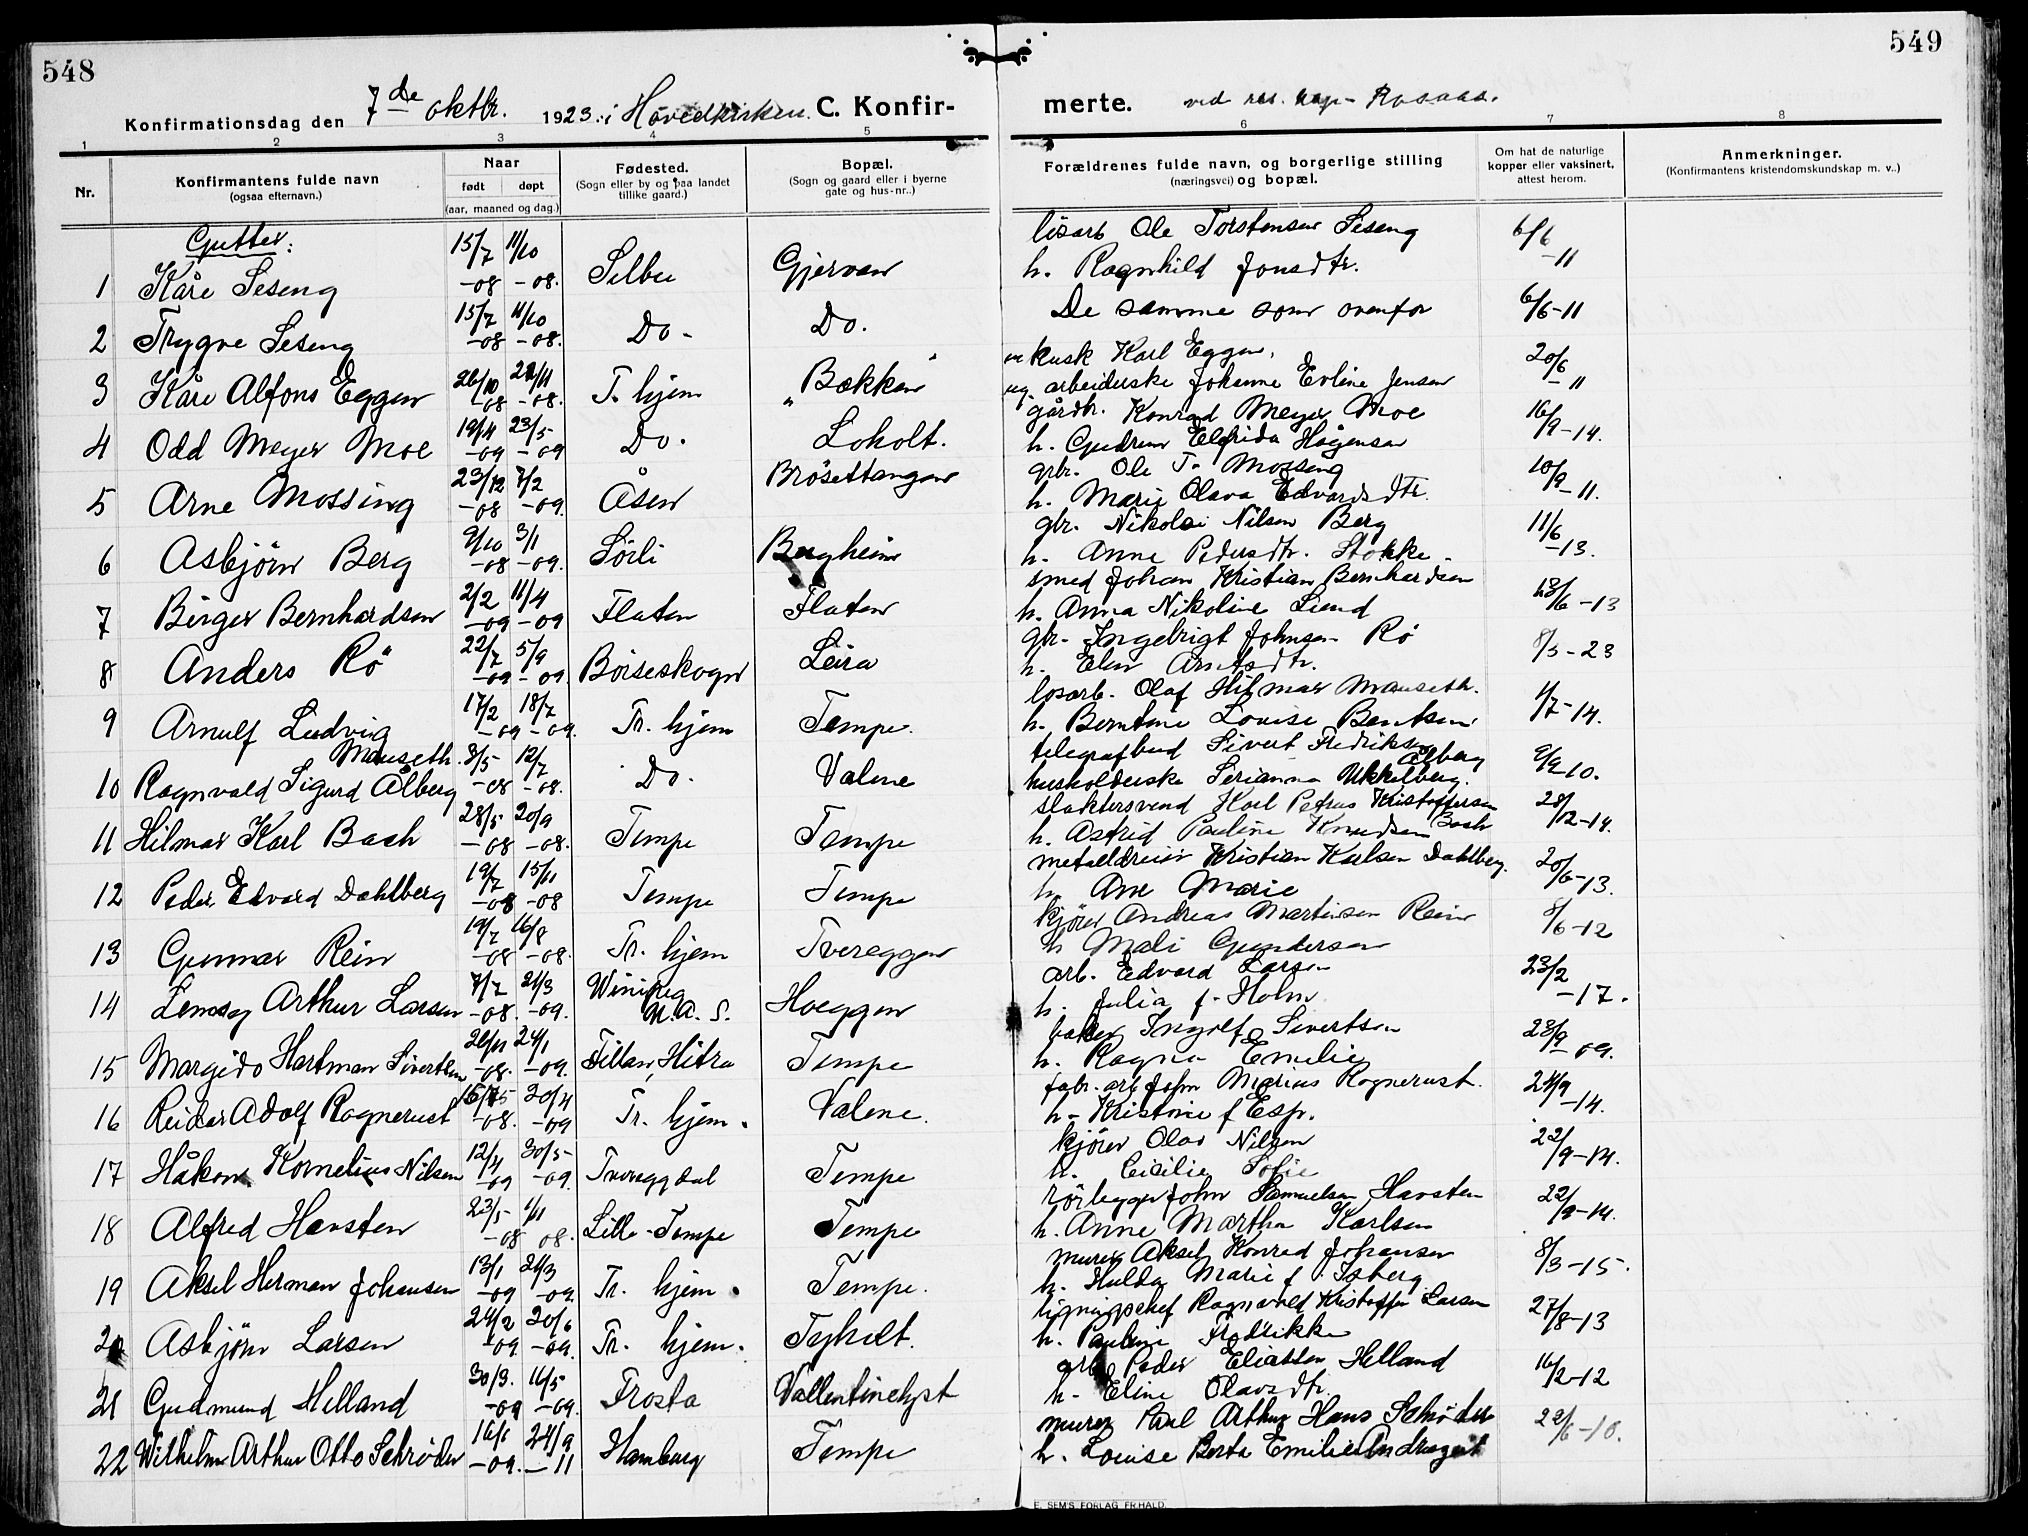 548
549
Konfirmationsdag den 7de oktbr. 1923. i Hovedkirken. C. Konfir-
merte. ved res. kap. Rosaas.
1 2 3 4 5 6 7 8
Nr.
Konfirmantens fulde navn (ogsaa efternavn.)
Naar født døpt (aar, maaned og dag.)
Fødested. (Sogn eller by og paa landet tillike gaard.)
Bopæl. (Sogn og gaard eller i byerne gate og hus-nr..)
Forældrenes fulde navn, og borgerlige stilling (næringsvei) og bopæl.
Om hat de naturlige kopper eller vaksinert, attest herom.
Anmerkninger. (Konfirmantens kristendomskundskap m. v..)
Gutter:
1 Kåre Seseng 15/7 -08 11/10 -08. Selbu Gjervan løsarb Ole Torstensen Seseng h. Ragnhild Jonsdtr. 6/6 -11
2 Trygve Seseng 15/7 -08 11/10 -08. Do. Do. De samme som ovenfor 6/6-11
3 Kåre Alfons Eggen 26/10 -08 22/11 -08. T. hjem Bækken kusk Karl Eggen, ug. arbeiderske Johanne Evline Jensen 20/6 -11
4 Odd Meyer Moe 19/4 -09 23/5 -09 Do. Loholt. gårdbr. Konrad Meyer Moe h. Gudrun Elfrida Hågensen 16/9-14.
5 Arne Mossing 23/12 -08 7/2 -09. Åsen Brøsettangen gbr. Ole T. Mossing h. Marie Olava Edvardsdtr. 10/9-11.
6 Asbjörn Berg 9/10 -08 3/1 -09. Sörli Bergheim gbr. Nikolai Nilsen Berg h. Anne Pedersdtr. Stokke. 11/6 -13.
7 Birger Bernhardsen 2/2 -09 11/4 -09 Flaten Flaten smed Johan Kristian Bernhardsen h. Anna Nikoline Lund 18/6-13
8 Anders Rö 22/7 -09 5/9 -09. Boiseskogen Leira gbr. Ingebrigt Johnsen Rö h. Elen Arntsdtr. 8/5-23
9 Arnulf Ludvig Mauseth. 17/2 -09 18/7 -09. Tr. hjem Tempe. løsarb. Olaf Hilmar Mauseth. h. Berntine Lovise Berntsen 1/7-14.
10 Ragnvald Sigurd Ålberg 8/5 -08 12/7 -08. Do. Valene telegrafbud Sivert Fredriksen Ålberg husholderske Serianna Ukkelberg. 9/9-10.
11 Hilmar Karl Bach 28/5 -08 20/9 -08. Tempe Tempe slaktersvend Karl Petrus Kristoffersen Bach h. Astrid Pauline Knudsen 28/12-14.
12 Peder Edvard Dahlberg 19/7 -08 15/11 -08 Tempe Tempe metaldreier Kristian Karlsen Dahlberg. h. Ane Marie 20/6-13.
13 Gunnar Rein 19/7 -08 16/8 -08. Tr. hjem Tvereggen kjører Andreas Martinsen Rein h Mali Gundersen 8/6-12
14 Lemsay Arthur Larsen 7/7 -08. 21/3 -09. Winipeg U.A.S. Hoeggen arb. Edvard Larsen h. Julia f. Holm 23/2 -17.
15 Margido Hartman Sivertsen 26/11 -08. 24/1 -09. Fillan, Hitra Tempe baker Ingolf Sivertsen h. Ragna Emelie 28/9-09.
16 Reidar Adolf Rognerust -08. 20/4 -09 Tr. hjem. Valene. fabr. arb John Marius Rognerust. h. Kristine f Esp. 24/9-14.
17 Håkon Kornelius Nilsen 12/4 -09 30/5 -09. Tvereggdal Tempe kjører Olav Nilsen h. Cicilie Sofie 22/9-14.
18 Alfred Havsten 23/5 -08 1/11 08. Lille-Tempe Tempe rörlegger John Samuelsen Havsten h. Anne Martha Karlsen 22/9-14.
19 Aksel Herman Johansen 13/1 -09 21/3 -09. Tr. hjem. Tempe. murer Aksel Konrad Johansen h. Hulda Marie f. Isberg. 8/3-15.
20 Asbjörn Larsen 24/2 -09. 20/6 -09. Tr. hjem. Tyholt. ligningschef Ragnvald Kristoffer Larsen h. Pauline Fredrikke 27/8-13
21 Gudmund Helland 30/3. -09 16/5 -09. Frosta Vallentinelyst arb Peder Eliassen Helland h. Eline Olavsdtr. 16/2-12
22 Wilhelm Arthur Otto Schrøder 16/1 -09. 24/9 -11 Hamburg Tempe murer Paul Arthur Hans Schrøder h. Louise Berta Emilie 22/6-10.
E. SEM'S FORLAG FR.HALD